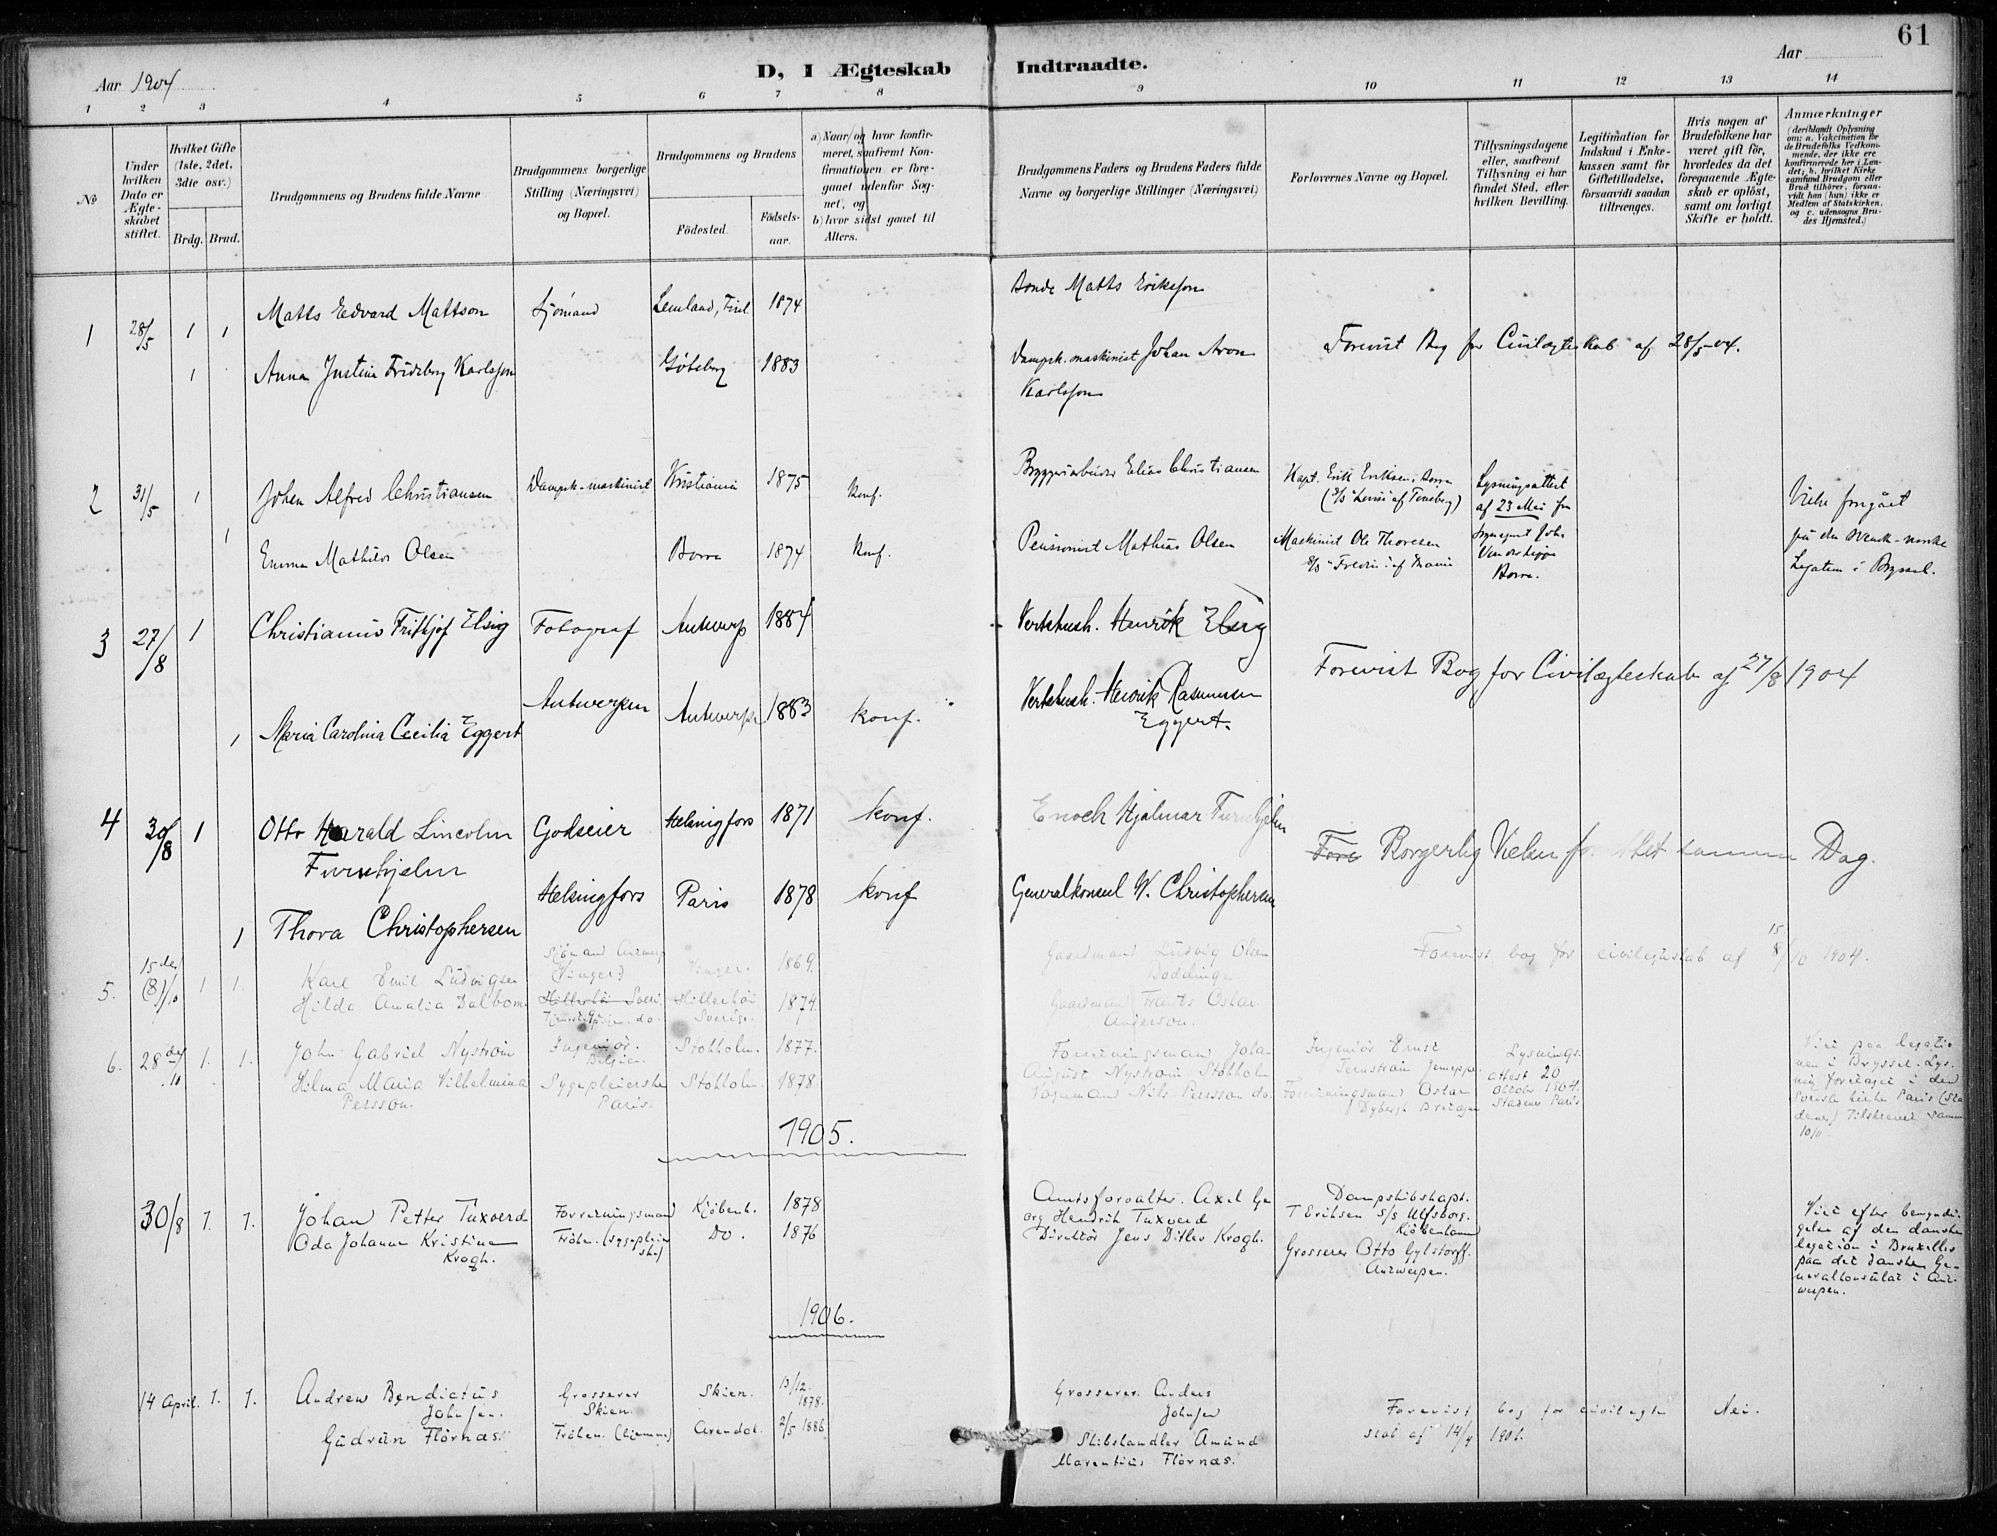 61
Aar 1904
D, I Ægteskab Indtraadte.
Aar
1 2 3 4 5 6 7 8 9 10 11 12 13 14
No
Under hvilken Dato er Ægteskabet stiftet.
Hvilket Gifte (1ste, 2det, 3die osv.)
Brdg. Brud.
Brudgommens og Brudens fulde Navne
Brudgommens borgerlige Stilling (Næringsvei) og Bopæl.
Brudgommens og Brudens
Fødested.
Fødselsaar.
a) Naar og hvor konfirmeret, saafremt Konfirmationen er foregaaet udenfor Sognet, og
b) hvor sidst gaaet til Alters.
Brudgommens Faders og Brudens Faders fulde Navne og borgerlige Stillinger (Næringsvei)
Forlovernes Navne og Bopæl.
Tillysningsdagene eller, saafremt Tillysning ei har fundet Sted, efter hvilken Bevilling.
Legitimation for Indskud i Enkekassen samt for Giftetilladelse, forsaavidt saadan tiltrænges.
Hvis nogen af Brudefolkene har været gift før, hvorledes da det foregaaende Ægteskab er opløst, samt om lovligt Skifte er holdt.
Anmærkninger
(deriblandt Oplysning om: a. Vakcination for de Brudefolks Vedkommende, der ikke ere konfirmerede her i Landet; b. hvilket Kirkesamfund Brudgom eller Brud tilhører, forsaavidt han (hun) ikke er Medlem af Statskirken, og c. udensogns Brudes Hjemsted.)
1 28/5 1 1 Matts Edvard Mattson Sjömand Lemland, Finl 1874 Bonde Matts Eriksson
1 Anna Justina Fridsberg Karlsson Göteborg 1883 Dampsk. maskinist Johan Aron Karlsson
Forevist Bog for Civilægteskab af 28/5-04.
2 31/5 1 Johan Alfred Christiansen Dampsk-maskinist Kristiania 1875 Konf. Bryggeriarbeider Elias Christiansen Kapt. Erik Eriksen, Borre
1 Emma Mathilde Olsen Borre 1874 Konf. Pensionist Mathias Olsen Maskinist Ole Thoresen
Lysningsattest af 23 Mai fra
Borre.
Vielse foregået på den svensk-norske Legation i Bryssel.
3 27/8 1 Christianus Frithjof Elsig Fotograf Antwerp 1884 Vertshush. Henrik Elsig
Antwerpen
1 Maria Carolina Cecilia Eggert Antwerpn 1883 Konf. Vertshush. Henrik Rasmussen Eggert.
Forevist Bog for Civilægteskab af 27/8 1904
4 30/8 1 Otto Harald Lincoln Furuhjelm Godseier Helsingfors 1871 Konf. Enoch Hjalmar Furuhjelm
Helsingfors
1 Thora Christophersen Paris 1878 Konf Generalkonsul W. Christophersen
Borgerlig Vielse samme Dag.
5. 15de (8)/10 1 1. Karl Emil Ludvigsen Sjömand Antwerp (Vinger) Vinger. 1869. Gaardmand Ludvig Olsen
Hilda Amalia Dalbom. Sverige. 1874. Gaardman Frants Oskar Anderson.
Forevist bog for civilegteskab af 15 8/10 1904.
6. 28de/10 1. 1. John Gabriel Nyström Ingeniör. Belgien. Stokholm. 1877. Forretningsmand Johan August Nyström Stokholm Ingeniör Ernst
Hilma Maria Vilhelmina Persson. Sygepleierske Paris. Stokholm. 1878. Nils Persson do. Forretningsmand Oskar
Lysningsattest 20 Oktobr 1904.
Viet paa legationen i Bryssel. Lysning foretaget i den Svenske kirke Paris
1905.
30/8 1. 1. Johan Petter Tuxverd Forretningsmand Kjöbenh. 1878 Amtsforvalter. Axel Georg Hendrik Tuxverd
Oda Johanne Kristine Krogh. Fröken. (sygepleierske) Do. 1876 Direktör Jens Ditlev Krogh.
Dampskibskapt. T Eriksen S/S Ulfsborg. Kjöbenhavn
Grosserer Otto Gylstorff. Antwerpen.
Viet efter bemyndigelse af den danske legation i Bruxelles paa det danske Generalkonsulat i Antwerpen.
1906.
14 April. 1. 1. Andrew Bendictus Johnsen. Grosserer Skien. Skien. 13/12. 1878. Grosserer Anders Johnsen
Gudrun Flörnæs. Fröken. (hjemme) Arendal. 2/5 1886 Skibshandler Amund Marentius Flörnæs.
Forevist bog for civilegteskab af 14/4 1906. Nei.